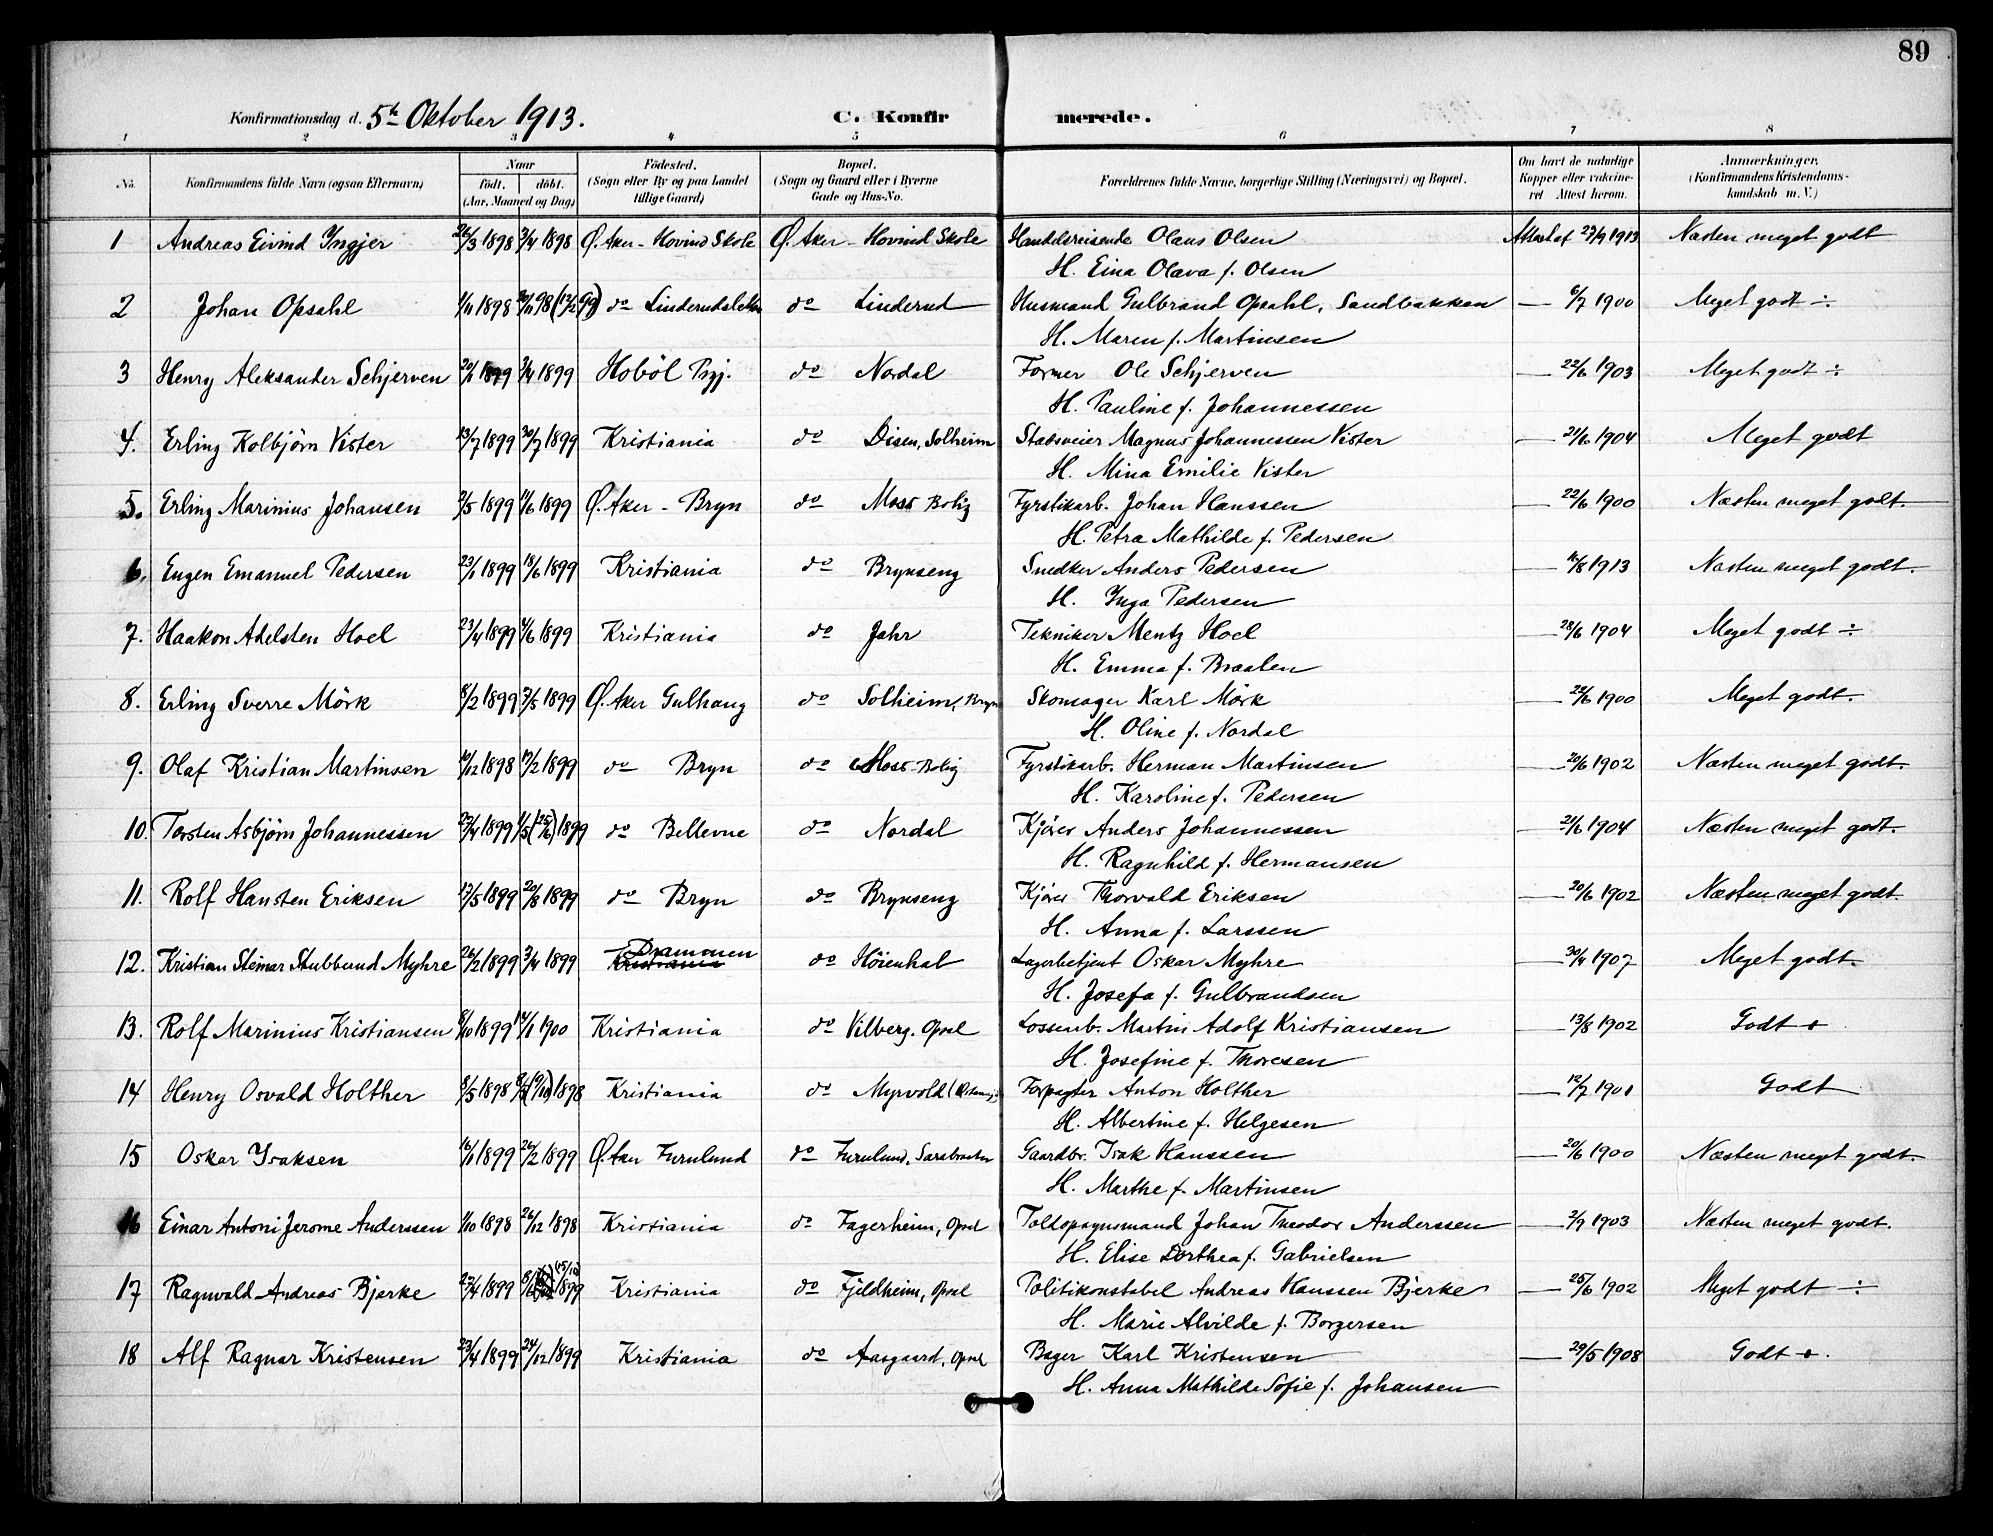 89
Konfirmationsdag d. 5te Oktober 1913. C. Konfir merede.
1 2 3 4 5 6 7 8
No. Konfirmandens fulde Navn (ogsaa Efternavn) Naar født. døbt. (Aar, Maaned og Dag) Fødested. (Sogn eller By og paa Landet tillige Gaard) Bopæl. (Sogn og Gaard eller i Byerne Gade og Hus-No. Forældrenes fulde Navne, borgerlige Stilling (Næringsvei) og Bopæl. Om havt de naturlige Kopper eller vakcineret Attest herom. Anmærkninger. (Konfirmandens Kristendomskundskab m. V.)
1 Andreas Eivind Yngjer 26/3 1898 3/4 1898 Ø. Aker - Hovind Skole Ø. Aker - Hovind Skole Handelsreisende Olaus Olsen Attest af 27/9 1913 Næsten meget godt
H. Eina Olava f. Olsen
2 Johan Opsahl 1/11 1898 do Linderud Husmand Gulbrand Opsahl, Sandbakken — 6/7 1900 Meget godt ÷
H. Maren f. Martinsen
3 Henry Aleksander Schjerven 3/4 1899 Hobøl Pgj. do Nordal Former Ole Schjerven — 22/6 1903 Meget godt ÷
H. Pauline f. Johannessen
4. Erling Kolbjørn Vister 13/7 1899 30/7 1899 Kristiania do Disen, Solheim Magnus Johannessen Vister — 21/6 1904 Meget godt
H. Mina Emilie Vister
5. Erling Marinius Johansen 2/5 1899 11/6 1899 Ø. Aker - Bryn do Moss Bolig Fyrstikarb. Johan Hanssen — 22/6 1900 Næsten meget godt.
H. Petra Mathilde f. Pedersen
6. Eugen Emanuel Pedersen 23/1 1899 18/6 1899 Kristiania do Brynseng Snedker Anders Pedersen — 1913 Næsten meget godt.
H. Inga Pedersen
7. Haakon Adelsten Hoel 23/4 1899 4/6 1899 Kristiania do Jahr Tekniker Mentz Hoel — 28/6 1904 Meget godt ÷
H. Emma f. Braaten
8. Erling Sverre Mörk 8/2 1899 7/5 1899 Ø. Aker Gulhaug do Solheim, Bryn Skomager Karl Mörk — 22/6 1900 Meget godt.
H. Oline f. Nordal
9. Olaf Kristian Martinsen 10/12 1898 19/2 1899 do Bryn do Moss-Bolig Fyrstikarb. Herman Martinsen — 20/6 1902 Næsten meget godt.
H. Karoline f. Pedersen
10. Torsten Asbjörn Johannessen 27/4 1899 1/5 (25/6) 1899 do Bellevue do Nordal Kjører Anders Johannessen — 21/6 1904 Næsten meget godt.
H. Ragnhild f. Hermansen
11. Rolf Hansten Eriksen 17/5 1899 20/8 1899 do Bryn do Brynseng Kjører Thorvald Eriksen — 20/6 1902 Næsten meget godt.
H. Anna f. Larssen
12. Kristian Steinar Stubberud Myhre 26/2 1899 3/4 1899 Kristiania Drammen do Höienhal Lagerbetjent Oskar Myhre — 30/4 1907 Meget godt.
H. Josefa f. Gulbrandsen
13. Rolf Marinius Kristiansen 8/10 1899 14/1 1900 Kristiania do Vilberg. Opsal Lossearb. Martin Adolf Kristiansen — 13/8 1902 Godt +
H. Josefine f. Thoresen
14 Henry Osvald Holther 8/5 1898 1898 Kristiania do Myrvold Forpagter Anton Holther — 12/7 1901 Godt
H. Albertine f. Helgesen
15 Oskar Isaksen 16/1 1899 26/2 1899 Ø. Aker Furulund do Furulund, Sarabraaten Gaardbr. Isak Hanssen — 20/6 1900 Næsten meget godt.
H. Marthe f. Martinsen
16 Einar Antoni Jerome Anderssen 1/10 1898 26/12 1898 Kristiania do Fagerheim, Opsal Toldopsynsmand Johan Theodor Anderssen — 2/9 1903 Næsten meget godt.
H. Elise Dorthea f. Gabrielsen
17 Ragnvald Andreas Bjerke 1899 1899 Kristiania do Fjeldheim, Opsal Politikonstabel Andreas Hanssen Bjerke — 25/6 1902 Meget godt ÷
H. Marie Alvilde f. Borgersen
18 Alf Ragnar Kristensen 23/4 1899 24/12 1899 Kristiania do Aasgaard, Opsal Bager Karl Kristensen — 29/5 1908 Godt +.
H. Anna Mathilde Sofie f. Johansen